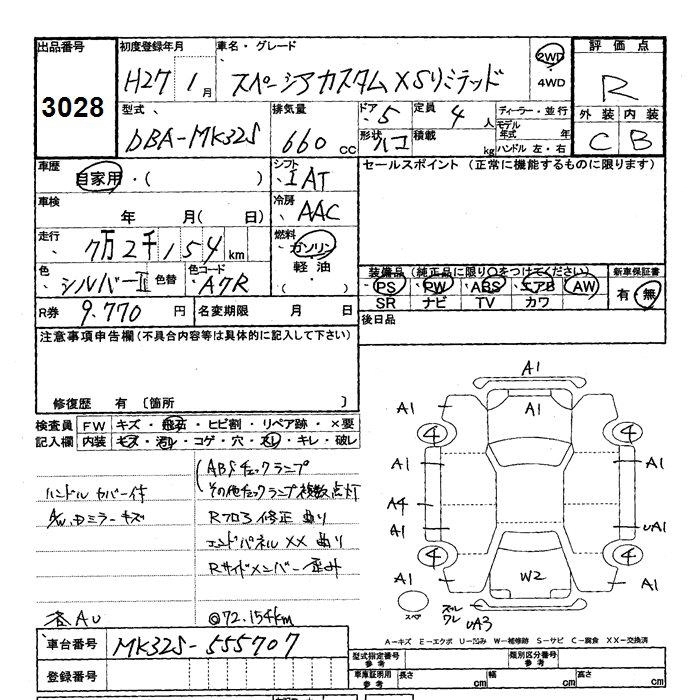 出品番号 初度登録年月 車名・グレード 評価点
3028 H27 1月 スペーシアカスタムXSリミテッド 2WD ・ 4WD R
型式 排気量 ドア 定員 ディーラー・並行 外装 内装
DBA-MK32S 660cc 5 4人 モデル年式 年 C B
形状 ハコ 積載 kg ハンドル 左・右
車歴 自家用・( ) シフト IAT セールスポイント (正常に機能するものに限ります)
車検 年 月( 日) 冷房 AAC
走行 7万2千154km 燃料 ガソリン ・ 軽油
色 シルバーII 色替 色コード A7R 装備品 (純正品に限り○をつけてください) 新車保証書
・PS ・PW ・ABS ・エアB AW 有・無
SR ナビ TV カワ
R券 9.770円 名変期限 月 日 後日品
注意事項申告欄(不具合内容等は具体的に記入して下さい)
修復歴 有 〔箇所 〕
検査員 FW キズ・飛石・ヒビ割・リペア跡・×要
記入欄 内装 キズ・汚レ・コゲ・穴・スレ・キレ・破レ
ABSチェックランプ
ハンドルカバー付 その他チェックランプ複数点灯
A/W、Dミラーキズ Rフロア修正 曲り
エンドパネルXX 曲り
Rサイドメンバー 歪み
AU @72.154km
A1
A1 A1 A1
4 4
A1 A1
A4
A1 UA1
4 4
A1 W2 A1
スペア ズレ ワレ UA3
A-キズ E-エクボ U-凹み W-補修跡 S-サビ C-腐食 XX-交換済
車台番号 MK32S-555707
登録番号
型式指定番号 参考 類別区分番号 参考
車庫証明用 参考 長さ cm 幅 cm 高さ cm